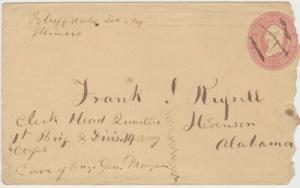 Bluffdale Dec 14
Illinois
Frank I Russell
Clerk Head Quarters
1st Brig 2 Divis 14 army
Corps
Stevenson
Alabama
Care of Brig. Gen. Morgan